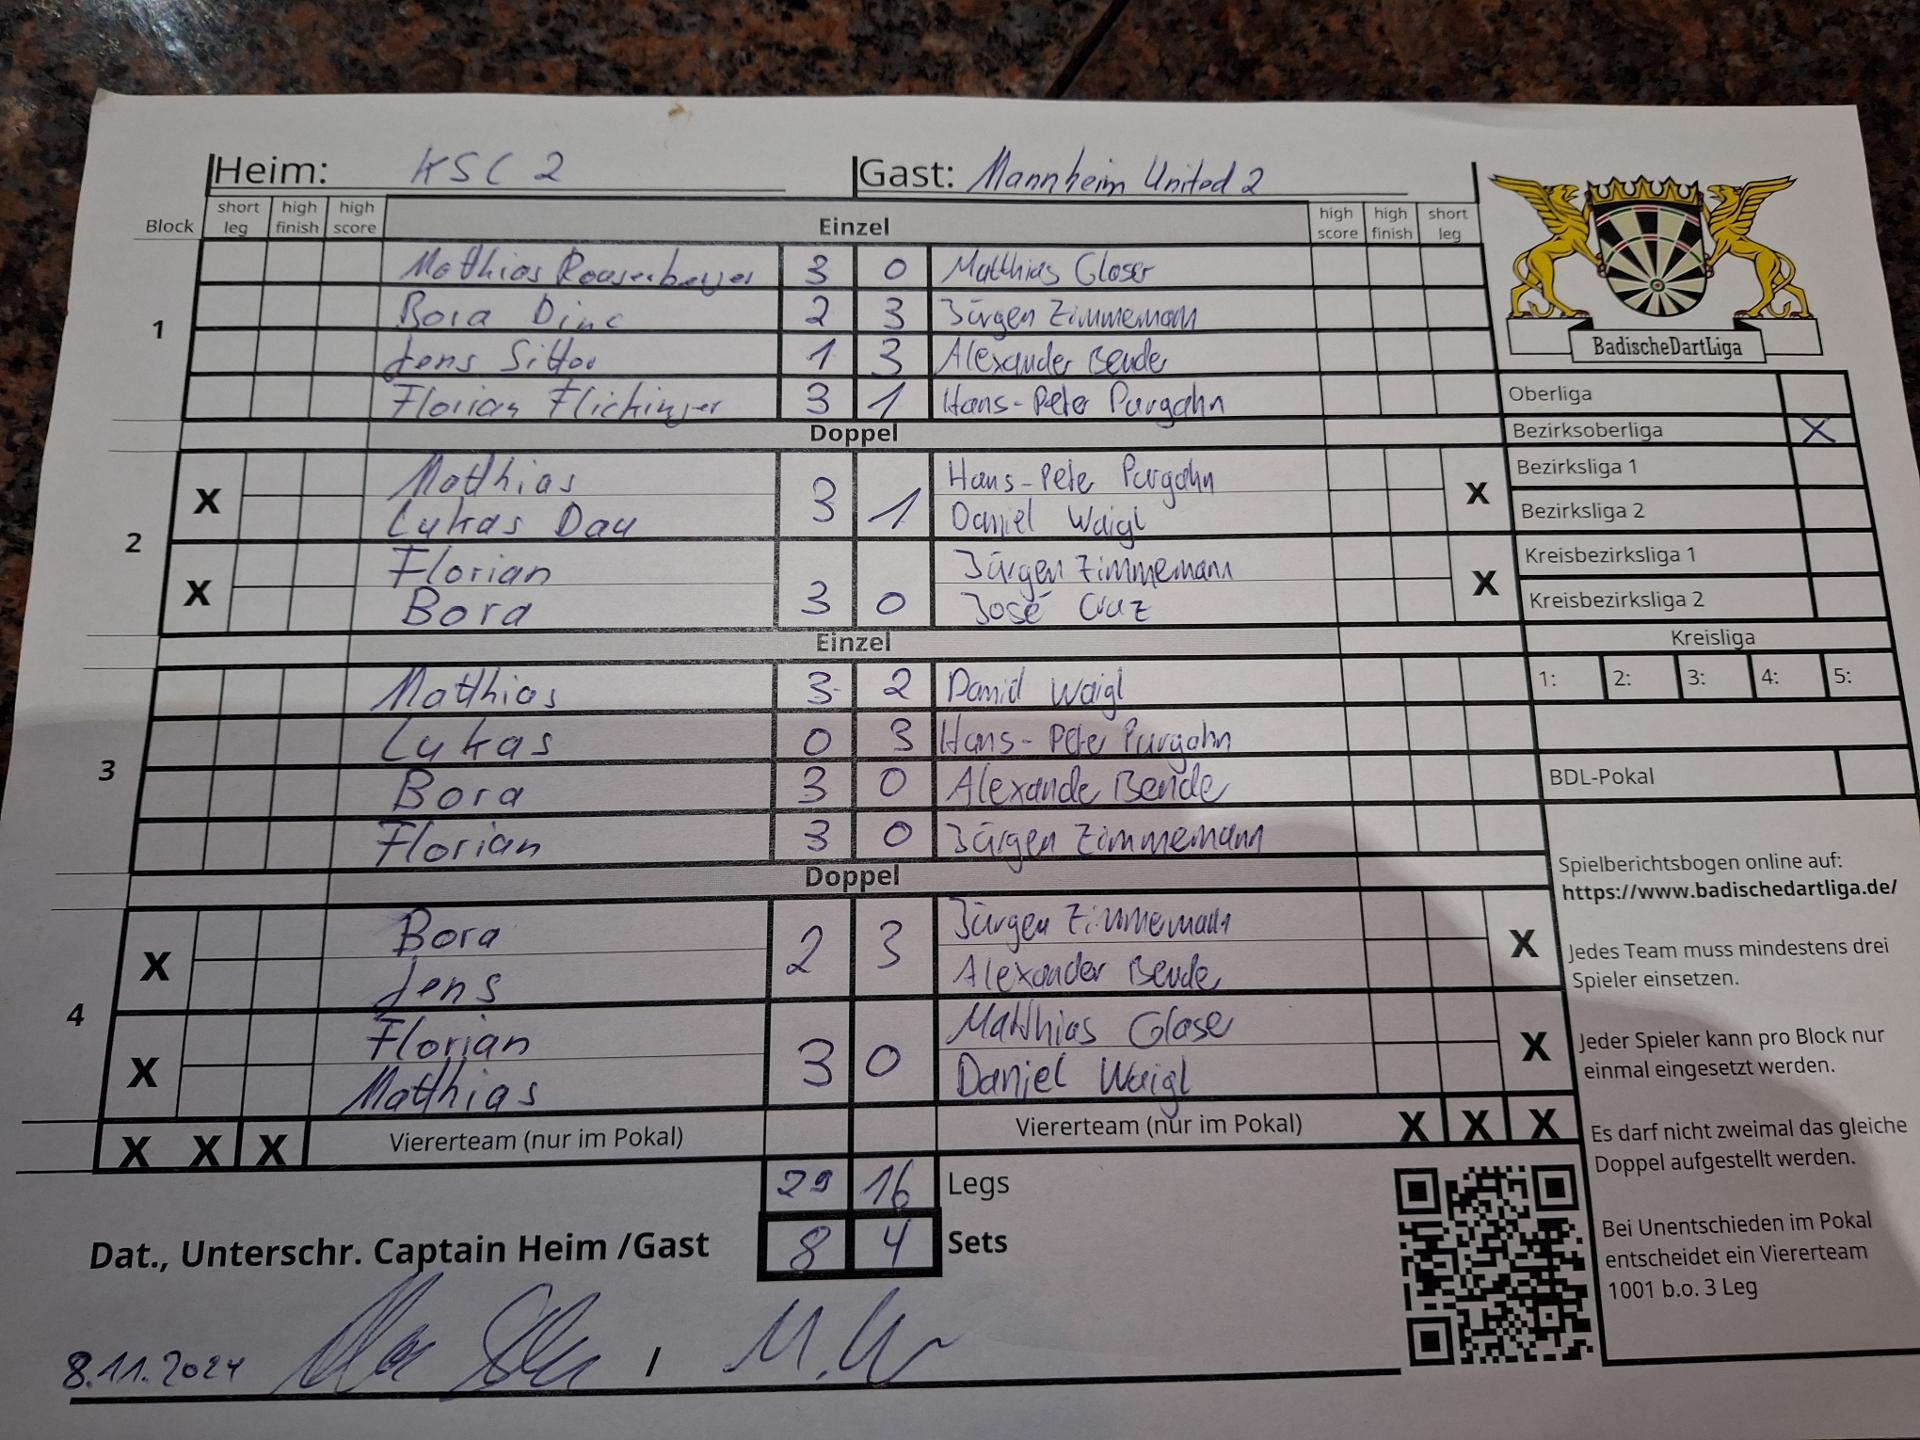 Heim: KSC 2 Gast: Mannheim United 2
Block short leg high finish high score Einzel high score high finish short leg
1
Mathias 3 0 Matthias Glaser
Bora Dinc 2 3 Jürgen Zimmemann
Jens 1 3 Alexander Bende
Florian 3 1 Hans-Pete Purgahn
Doppel
2
X Matthias 3 1 Hans-Pete Purgahn X
Lukas Dau Daniel Waigl
X Florian 3 0 Jürgen Zimmemann X
Bora José Cruz
Einzel
3
Matthias 3 2 Daniel Waigl
Lukas 0 3 Hans-Pete Purgahn
Bora 3 0 Alexande Bende
Florian 3 0 Jürgen Zimmemann
Doppel
4
X Bora 2 3 Jürgen Zimmemann X
Jens Alexander Bende
X Florian 3 0 Matthias Glase X
Matthias Daniel Waigl
X X X Viererteam (nur im Pokal) Viererteam (nur im Pokal) X X X
29 16 Legs
Dat., Unterschr. Captain Heim /Gast 8 4 Sets
8.11.2024 /
BadischeDartLiga
Oberliga
Bezirksoberliga X
Bezirksliga 1
Bezirksliga 2
Kreisbezirksliga 1
Kreisbezirksliga 2
Kreisliga
1: 2: 3: 4: 5:
BDL-Pokal
Spielberichtsbogen online auf:
https://www.badischedartliga.de/
Jedes Team muss mindestens drei
Spieler einsetzen.
Jeder Spieler kann pro Block nur
einmal eingesetzt werden.
Es darf nicht zweimal das gleiche
Doppel aufgestellt werden.
Bei Unentschieden im Pokal
entscheidet ein Viererteam
1001 b.o. 3 Leg